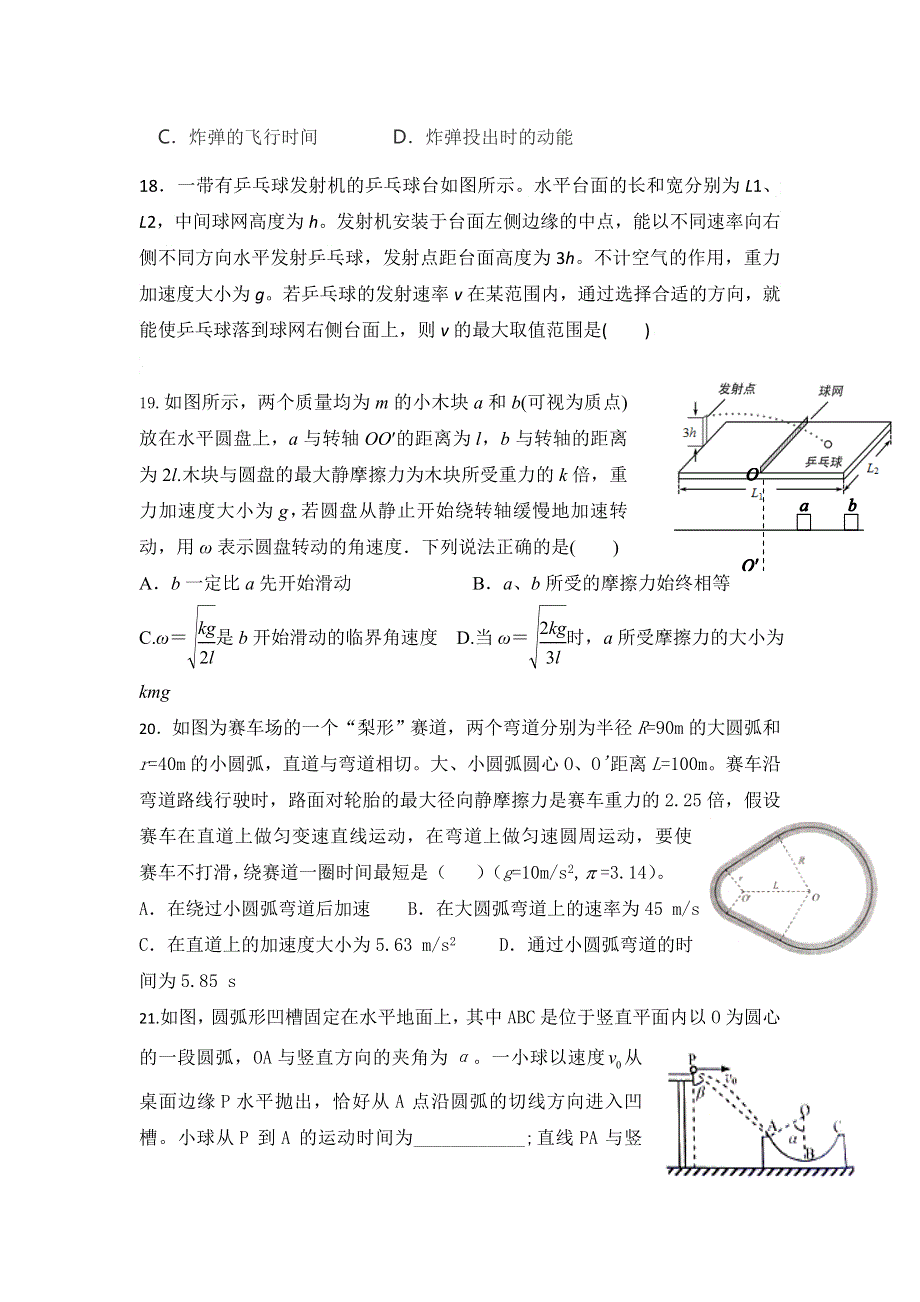 C．炸弹的飞行时间　　　　D．炸弹投出时的动能
18．一带有乒乓球发射机的乒乓球台如图所示。水平台面的长和宽分别为 L1、
L2，中间球网高度为 h。发射机安装于台面左侧边缘的中点，能以不同速率向右
侧不同方向水平发射乒乓球，发射点距台面高度为 3h。不计空气的作用，重力
加速度大小为 g。若乒乓球的发射速率 v 在某范围内，通过选择合适的方向，就
能使乒乓球落到球网右侧台面上，则 v 的最大取值范围是(　　)
发射点
球网
3h
乒乓球
L1
L2
19. 如图所示，两个质量均为 m 的小木块 a 和 b(可视为质点)
放在水平圆盘上，a 与转轴 OO′的距离为 l，b 与转轴的距离
为 2l.木块与圆盘的最大静摩擦力为木块所受重力的 k 倍，重
力加速度大小为 g，若圆盘从静止开始绕转轴缓慢地加速转
动，用 ω 表示圆盘转动的角速度．下列说法正确的是(　　)
O
a
b
O′
A．b 一定比 a 先开始滑动　　　　　　B．a、b 所受的摩擦力始终相等
C.ω＝√(kg/2l)是 b 开始滑动的临界角速度　D.当 ω＝√(2kg/3l)时，a 所受摩擦力的大小为
kmg
20．如图为赛车场的一个“梨形”赛道，两个弯道分别为半径 R=90m 的大圆弧和
r=40m 的小圆弧，直道与弯道相切。大、小圆弧圆心 O、O'距离 L=100m。赛车沿
弯道路线行驶时，路面对轮胎的最大径向静摩擦力是赛车重力的 2.25 倍，假设
赛车在直道上做匀变速直线运动，在弯道上做匀速圆周运动，要使
赛车不打滑，绕赛道一圈时间最短是（　　）（g=10m/s²,π=3.14）。
A．在绕过小圆弧弯道后加速　　B．在大圆弧弯道上的速率为 45 m/s
C．在直道上的加速度大小为 5.63 m/s²　　D．通过小圆弧弯道的时
间为 5.85 s
R
r
L
O'
O
21.如图，圆弧形凹槽固定在水平地面上，其中 ABC 是位于竖直平面内以 O 为圆心
的一段圆弧，OA 与竖直方向的夹角为 α。一小球以速度v₀从
桌面边缘 P 水平抛出，恰好从 A 点沿圆弧的切线方向进入凹
槽。小球从 P 到 A 的运动时间为____________;直线 PA 与竖
P
v₀
β
O
A
α
C
B